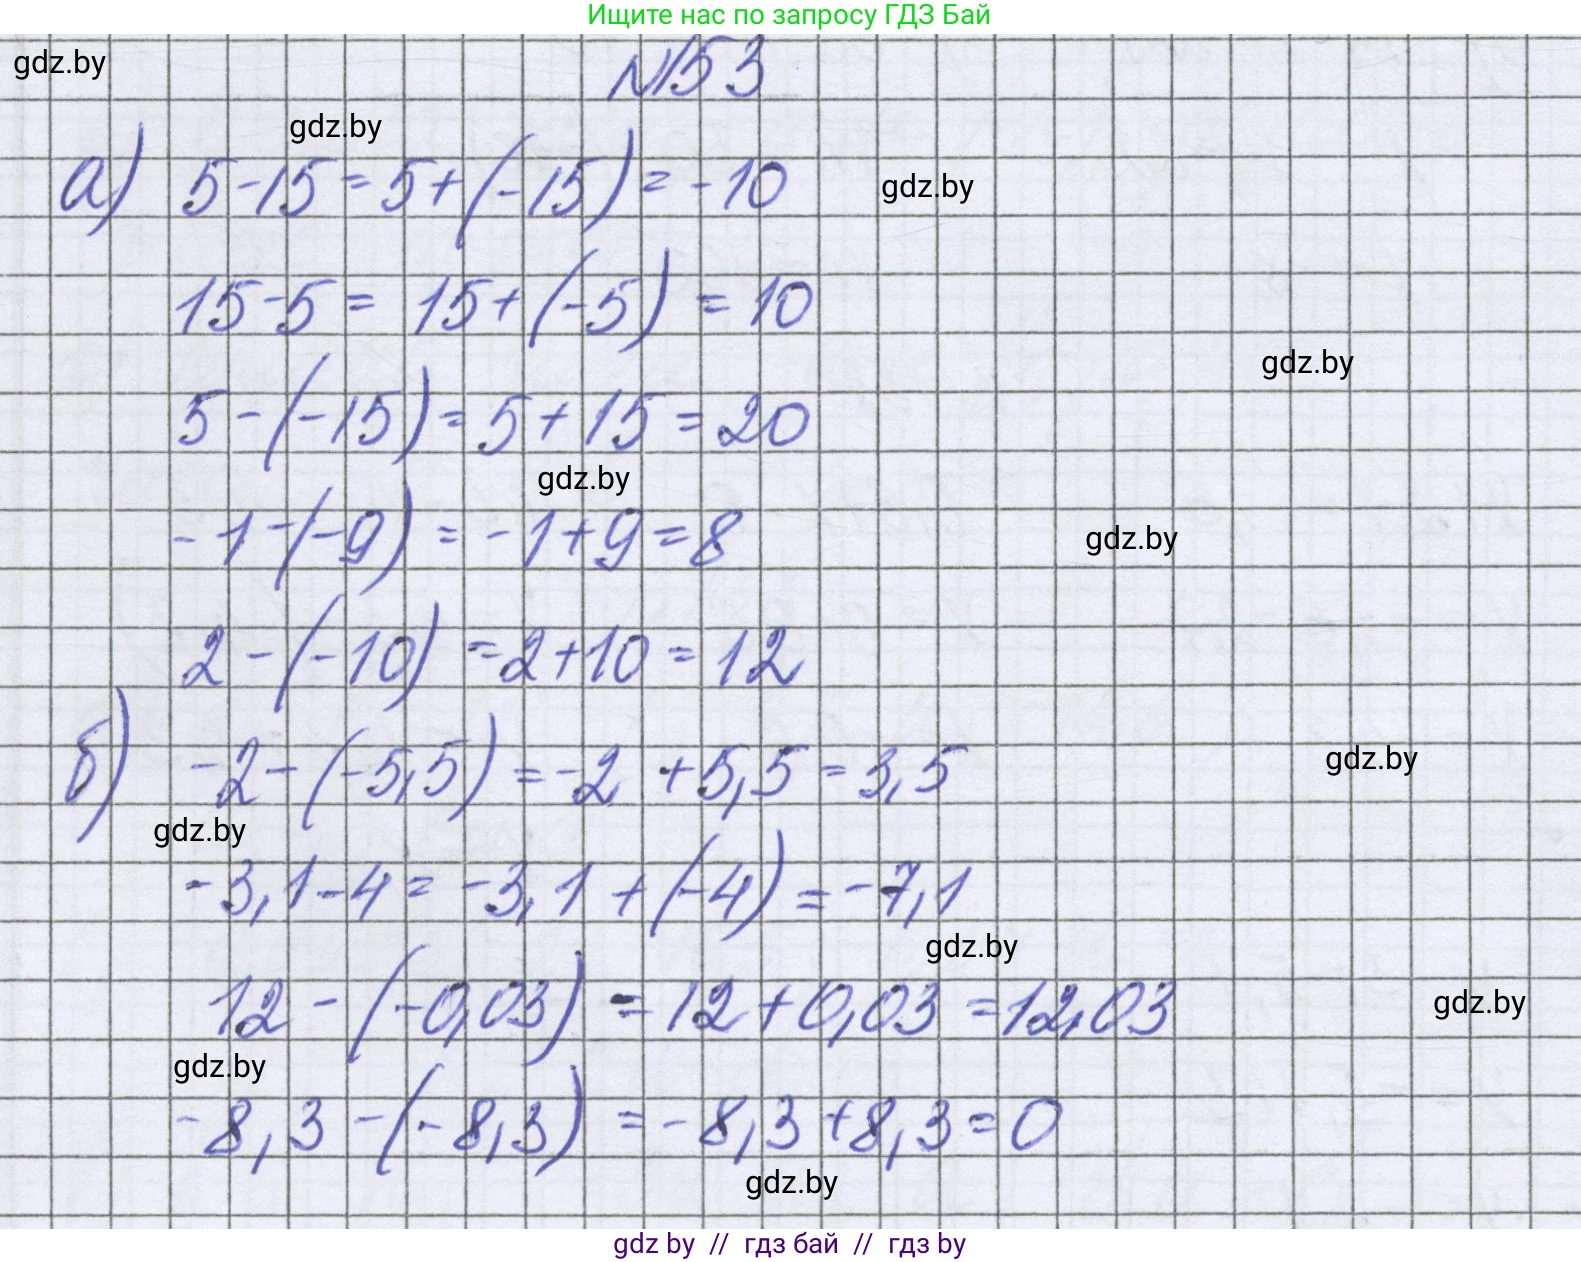 Ищите нас по запросу ГДЗ Бай
gdz.by
№53
gdz.by
а) 5-15=5+(-15)=-10
gdz.by
15-5= 15+(-5)=10
gdz.by
5-(-15)=5+15=20
gdz.by
-1-(-9)=-1+9=8
gdz.by
2-(-10)=2+10=12
б) -2-(-5,5)=-2 +5,5=3,5
gdz.by
gdz.by
-3,1-4=-3,1+(-4)=-7,1
gdz.by
12-(-0,03)=12+0,03=12,03
gdz.by
gdz.by
-8,3-(-8,3)=-8,3+8,3=0
gdz.by
gdz by // гдз бай // гдз by